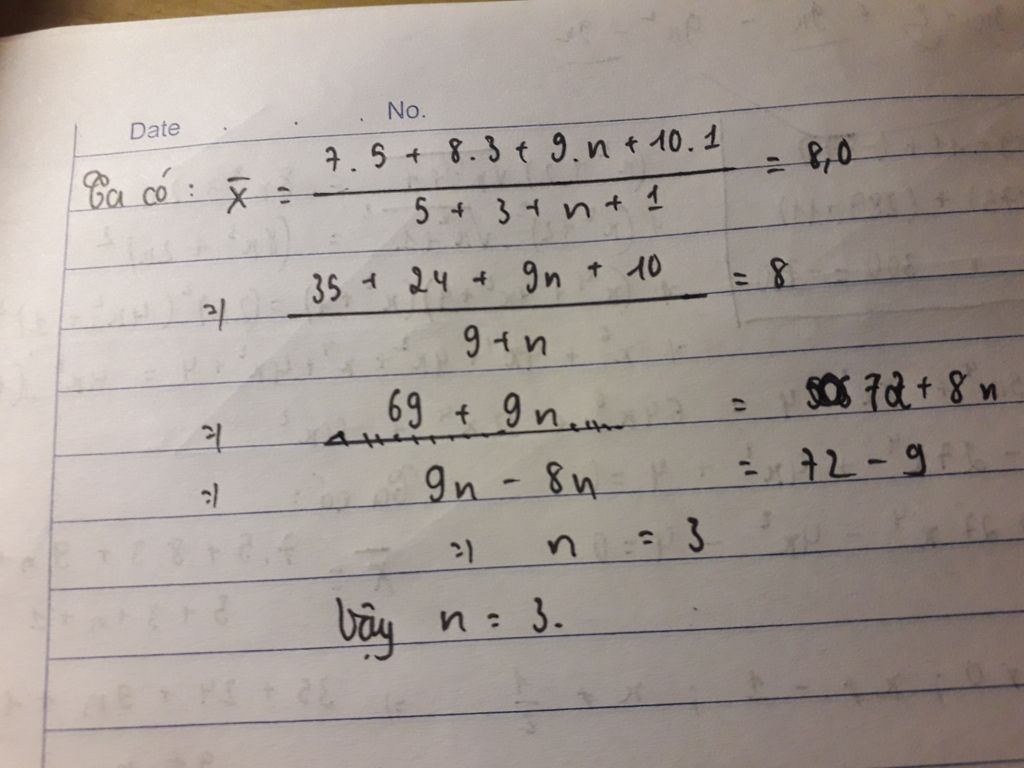 Date . . . No.
Ta có: X̄ = (7.5 + 8.3 + 9.n + 10.1) / (5 + 3 + n + 1) = 8,0
=) (35 + 24 + 9n + 10) / (9 + n) = 8
=) 69 + 9n = 72 + 8n
=) 9n - 8n = 72 - 9
=) n = 3
Vậy n = 3.